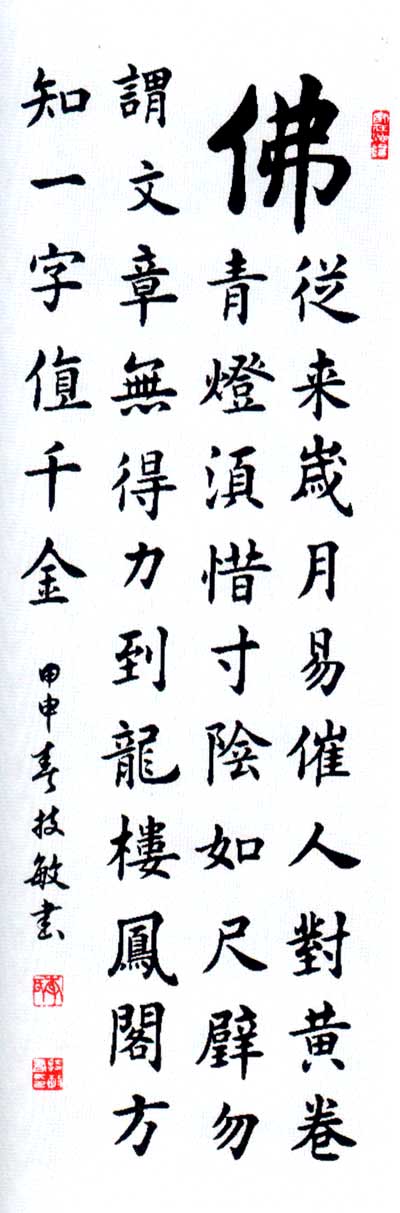 佛
從来歲月易催人對黄卷
青燈須惜寸陰如尺璧勿
謂文章無得力到龍樓鳳閣方
知一字值千金
甲申春技敏書